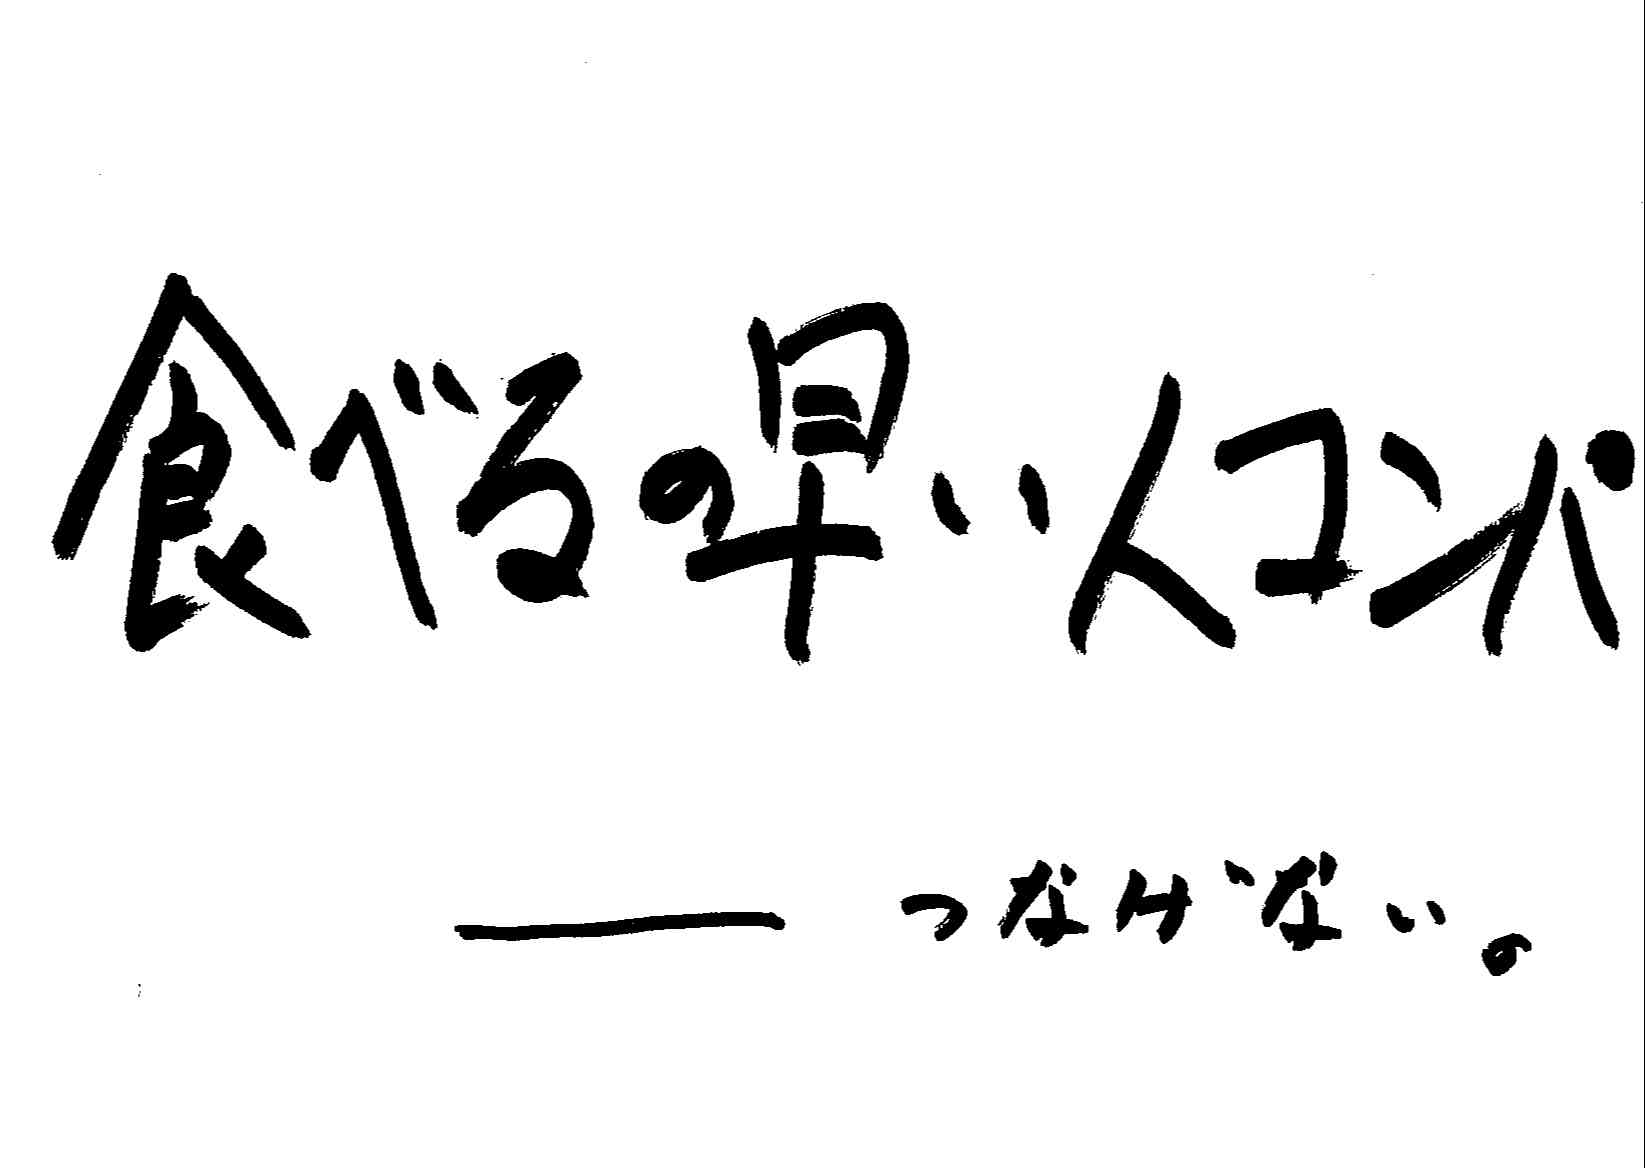 食べるの早い人コンパ
―― つなげない。